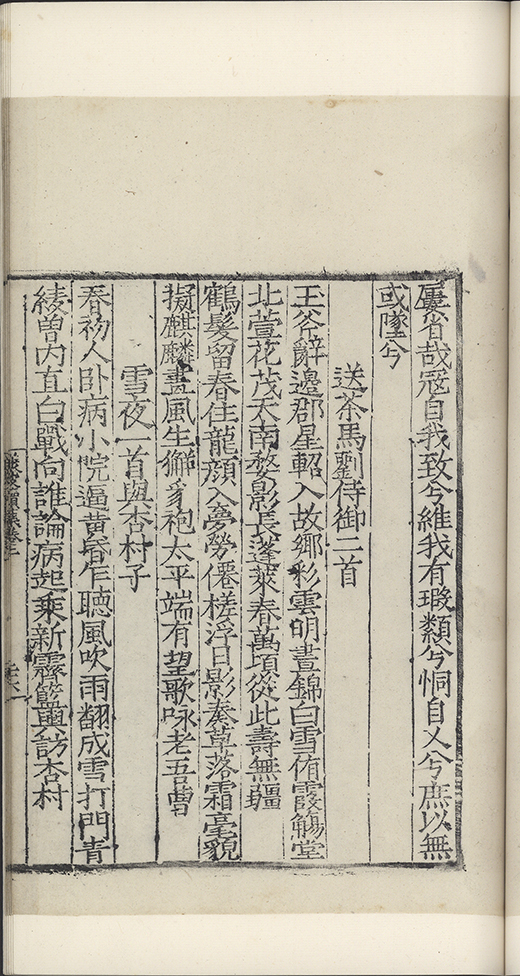 屢省哉冦自我致兮維我有瑕纇兮恫自乂兮庶以無
或墜兮
送茶馬劉侍御二首
玉斧辭邊郡星軺入故郷彩雲明晝錦白雪侑霞觴堂
北萱花茂天南婺影長蓬萊春萬頃從此壽無疆
鶴髮留春住龍顔入夢勞僊槎浮日影奏草落霜毫貌
擬麒麟畫風生獬豸袍太平端有望歌咏老吾曹
雪夜一首與杏村子
春初人卧病小院逼黄昏乍聽風吹雨翻成雪打門青
綾曽内直白戰向誰論病起乘新霽籃輿訪杏村